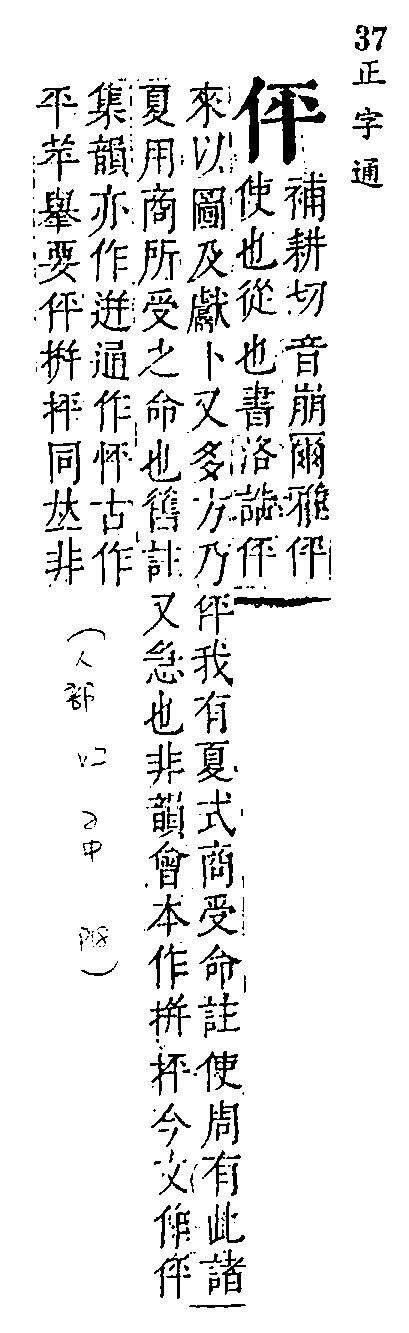 37 正字通
伻
補耕切音崩爾雅伻
使也從也書洛誥伻
來以圖及獻卜又多方乃伻我有夏式商受命註使周有此諸
夏用商所受之命也舊註又急也非韻會本作拼抨今文作伻
集韻亦作迸通作怦古作
平苹舉要伻拼抨同𠀤非
(人部)